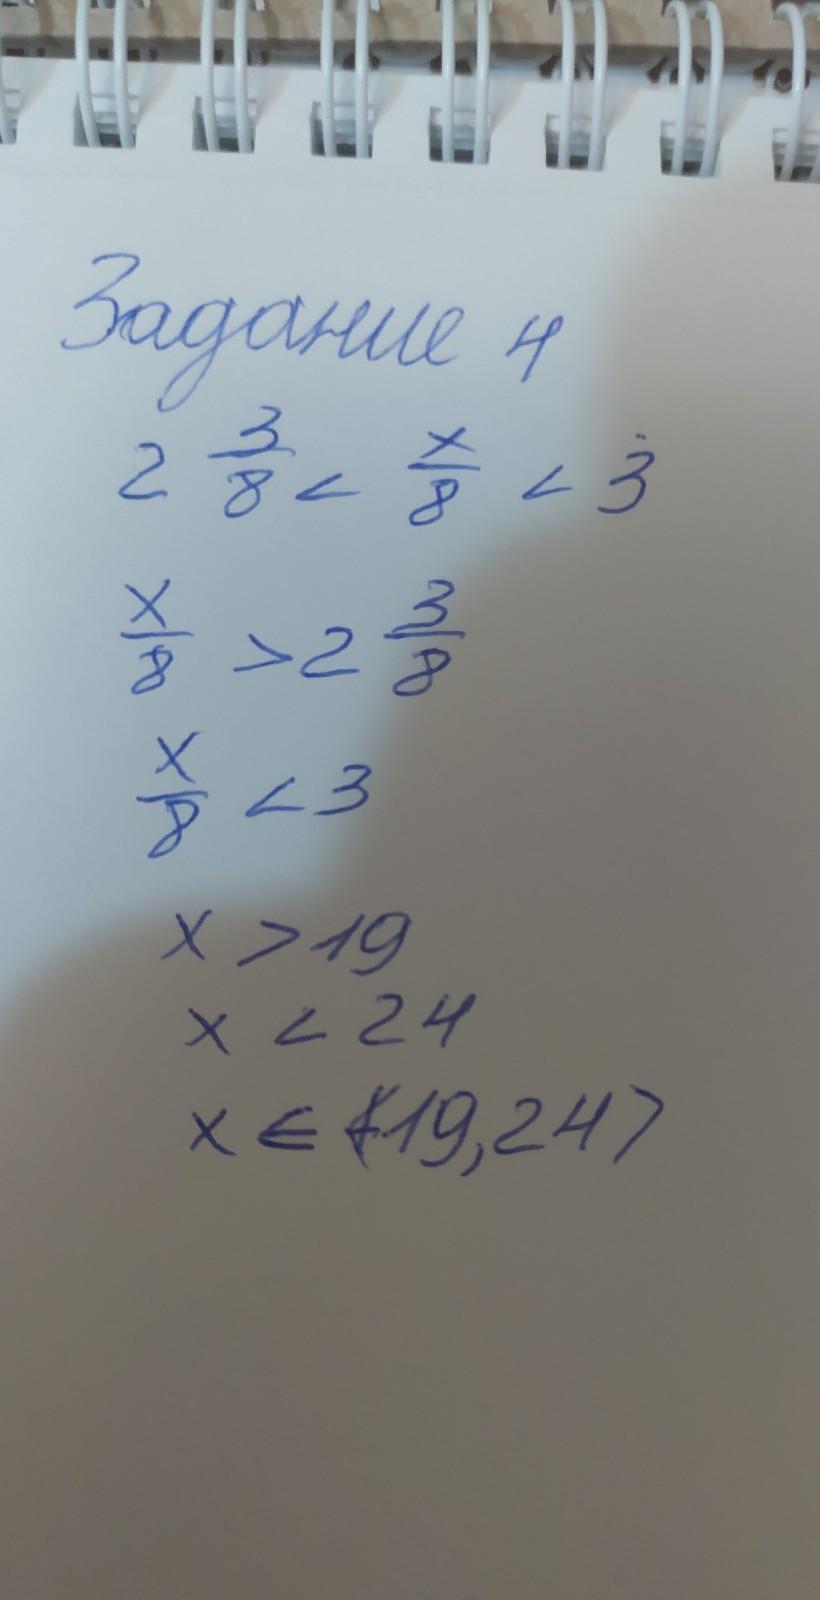 Задание 4
2 3/8 < x/8 < 3
x/8 > 2 3/8
x/8 < 3
x > 19
x < 24
x ∈ ⟨19, 24⟩